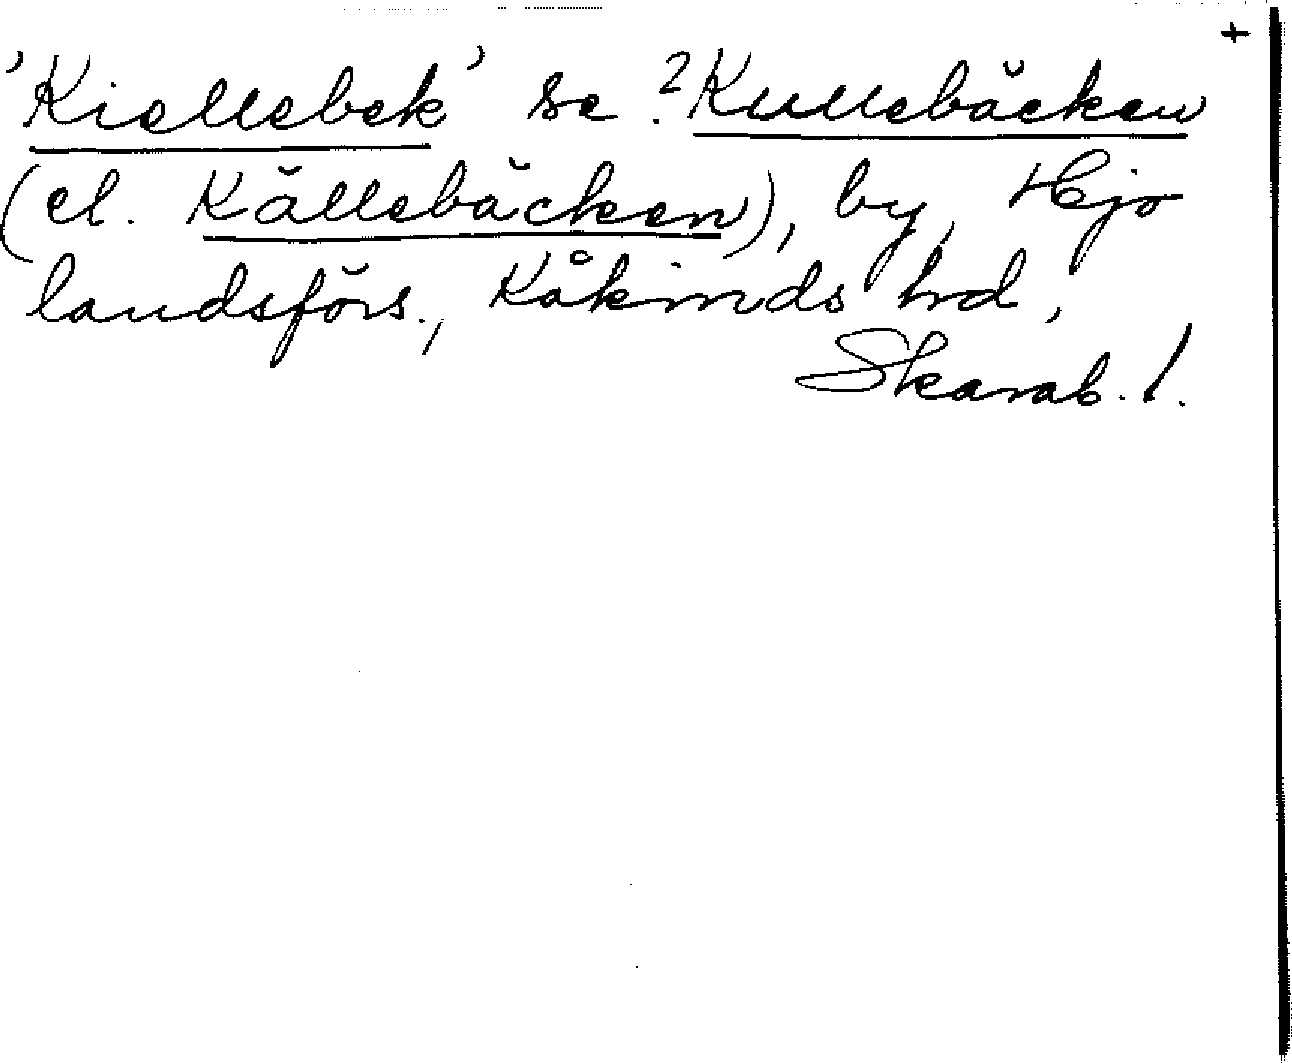 +
'Kiellebek' se ?Kullebäcken
(el. Källebäcken), by, Hjo
landsförs., Kåkinds hrd,
Skarab. l.